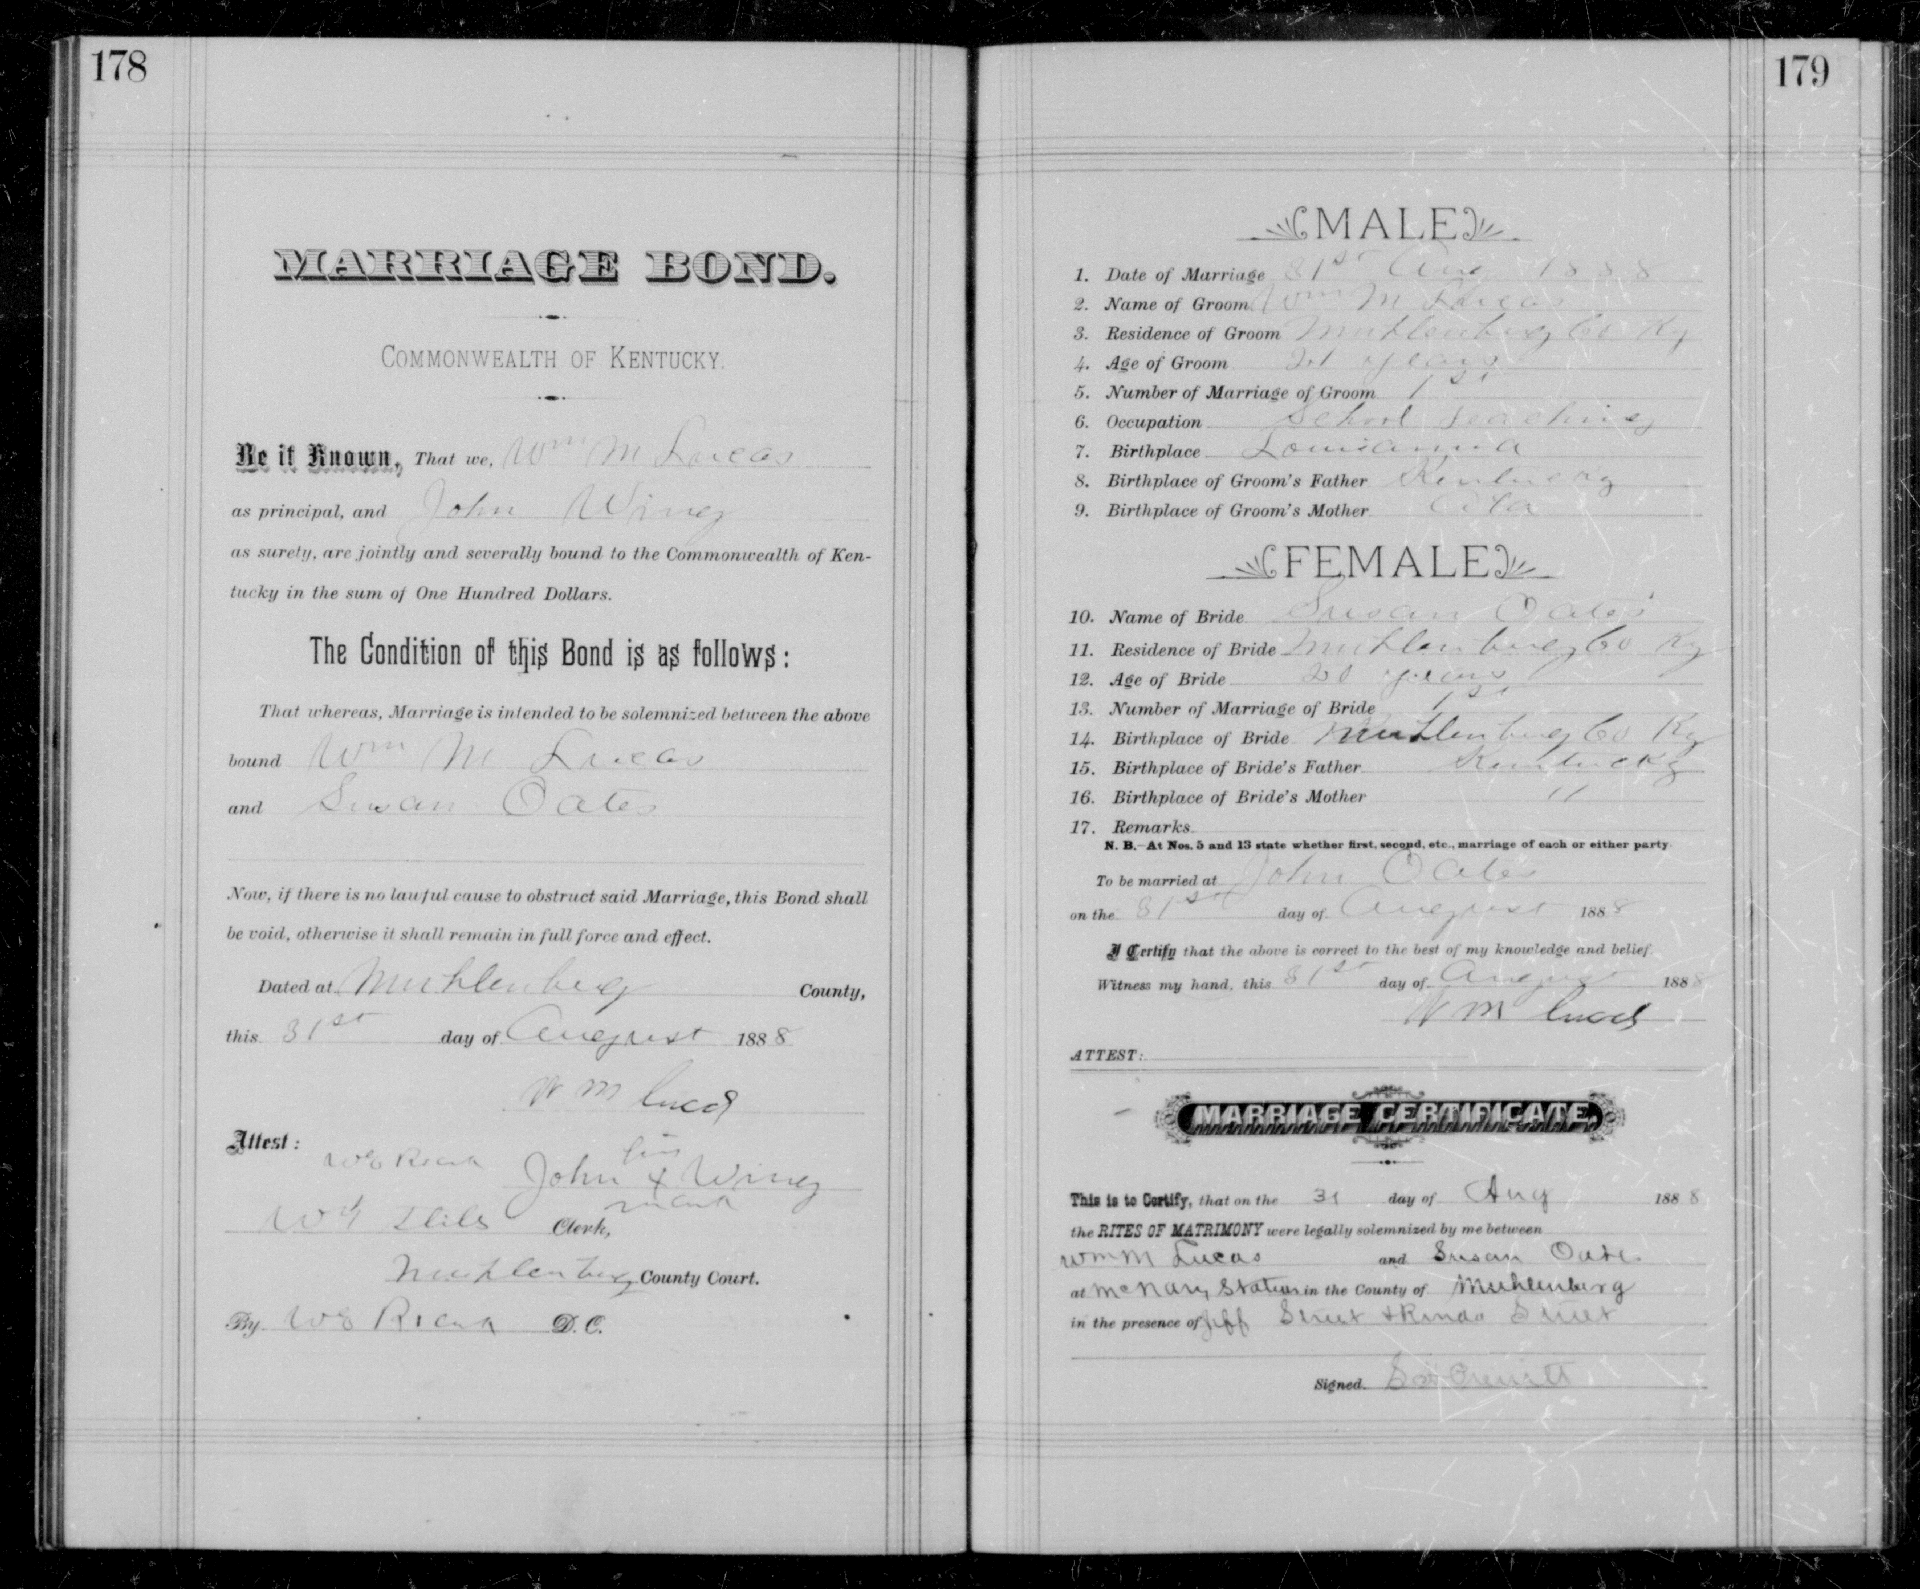 178
MARRIAGE BOND.
COMMONWEALTH OF KENTUCKY.
Be it Known, That we, Wm M Lucas
as principal, and John Wing
as surety, are jointly and severally bound to the Commonwealth of Ken-
tucky in the sum of One Hundred Dollars.
The Condition of this Bond is as follows:
That whereas, Marriage is intended to be solemnized between the above
bound Wm M Lucas
and Susan Oates
Now, if there is no lawful cause to obstruct said Marriage, this Bond shall
be void, otherwise it shall remain in full force and effect.
Dated at Muhlenberg County,
this 31st day of August 1888
W M Lucas
Attest:
his
John x Wing
mark
Clerk,
Muhlenberg County Court.
By D. C.
179
MALE
1. Date of Marriage 31st Aug 1888
2. Name of Groom Wm M Lucas
3. Residence of Groom Muhlenberg Co Ky
4. Age of Groom 21 years
5. Number of Marriage of Groom 1st
6. Occupation School teaching
7. Birthplace Louisianna
8. Birthplace of Groom's Father Kentucky
9. Birthplace of Groom's Mother
FEMALE
10. Name of Bride Susan Oates
11. Residence of Bride Muhlenberg Co Ky
12. Age of Bride 20 years
13. Number of Marriage of Bride 1st
14. Birthplace of Bride Muhlenberg Co Ky
15. Birthplace of Bride's Father Kentucky
16. Birthplace of Bride's Mother "
17. Remarks
N. B.—At Nos. 5 and 13 state whether first, second, etc., marriage of each or either party
To be married at John Oates
on the 31st day of August 1888
I Certify that the above is correct to the best of my knowledge and belief.
Witness my hand, this 31st day of August 1888
W M Lucas
ATTEST:
MARRIAGE CERTIFICATE.
This is to Certify, that on the 31 day of Aug 1888
the RITES OF MATRIMONY were legally solemnized by me between
Wm M Lucas and Susan Oates
at McNary Station in the County of Muhlenberg
in the presence of Jeff Street &
Signed.